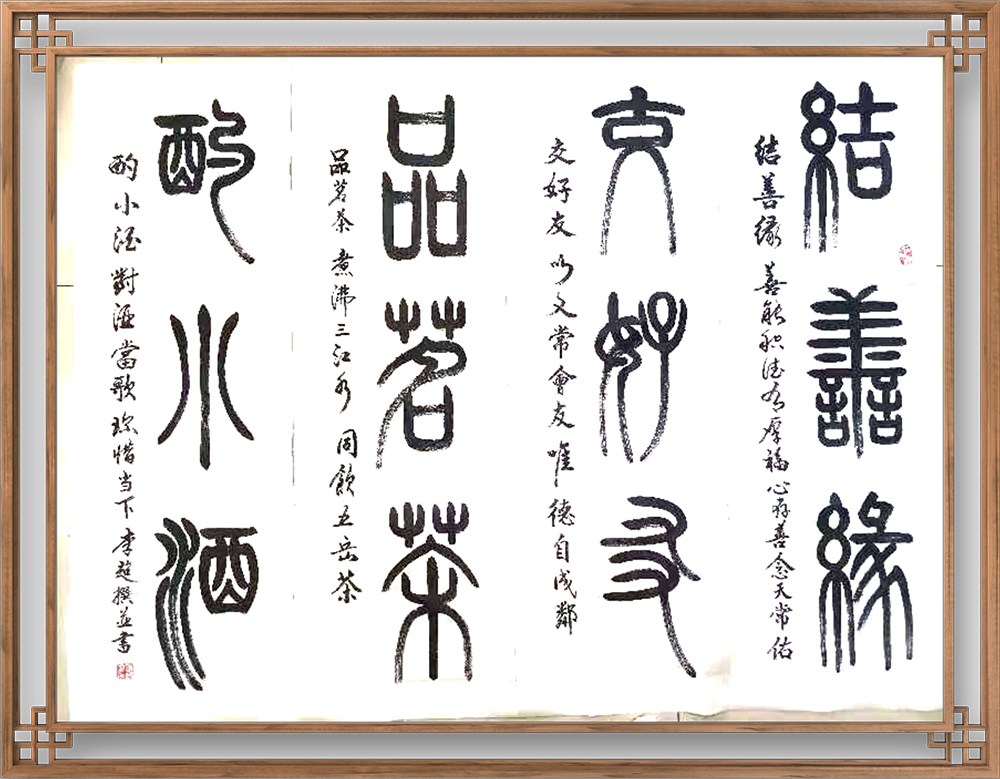 結善緣
結善緣 善能积德厚福心存善念天常佑
交好友
交好友 以文常會友 唯德自成鄰
品茗茶
品茗茶 煮沸三江水 同飲五岳茶
酌小酒
酌小酒對酒當歌 珍惜当下 李超撰並書